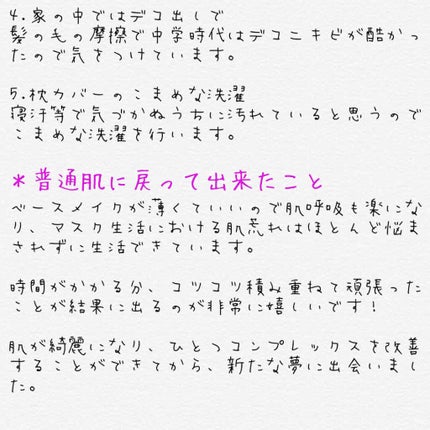 4.家の中ではデコ出しで
髪の毛の摩擦で中学時代はデコニキビが酷かっ
たので気をつけています。
5.枕カバーのこまめな洗濯
寝汗等で気づかぬうちに汚れていると思うので
こまめな洗濯を行います。
＊普通肌に戻って出来たこと
ベースメイクが薄くていいので肌呼吸も楽にな
り、マスク生活における肌荒れはほとんど悩ま
されずに生活できています。
時間がかかる分、コツコツ積み重ねて頑張った
ことが結果に出るのが非常に嬉しいです!
肌が綺麗になり、ひとつコンプレックスを改善
することができてから、新たな夢に出会いまし
た。